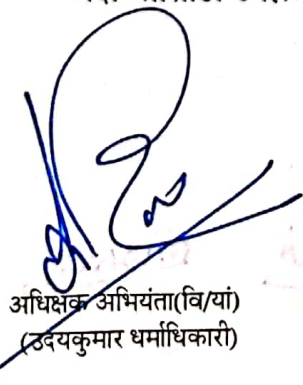 अधिक्षक अभियंता(वि/यां)
(उदयकुमार धर्माधिकारी)